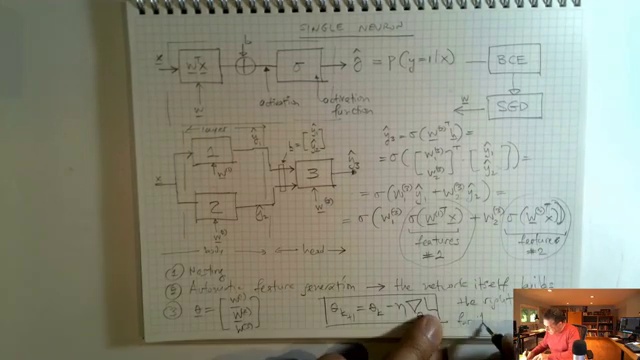 SINGLE NEURON
x wᵀx b σ ŷ = P(y=1|x) BCE
w activation activation function w SGD
layer
x 1 w⁽¹⁾ ŷ₁ h = [ŷ₁ ŷ₂] 3 ŷ₃ w⁽³⁾
2 w⁽²⁾ ŷ₂
ŷ₃ = σ(w⁽³⁾ᵀ h) =
= σ([w₁⁽³⁾ w₂⁽³⁾]ᵀ [ŷ₁ ŷ₂]) =
= σ(w₁⁽³⁾ŷ₁ + w₂⁽³⁾ŷ₂) =
= σ(w₁⁽³⁾ σ(w⁽¹⁾ᵀx) + w₂⁽³⁾ σ(w⁽²⁾ᵀx))
features #1 features #2
head
① Nesting
② Automatic feature generation → the network itself builds
the right
③ θ = [w⁽¹⁾ w⁽²⁾ w⁽³⁾] θₖ₊₁ = θₖ - η∇